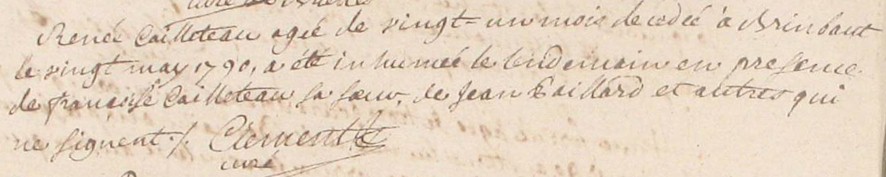 Renée Cailleteau agée de vingt-un mois decedée à Brinbaut
le vingt may 1790, a été inhumée le lendemain en presence
de françoise Cailleteau sa sœur, de Jean Gaillard et autres qui
ne signent ./. Clement
curé